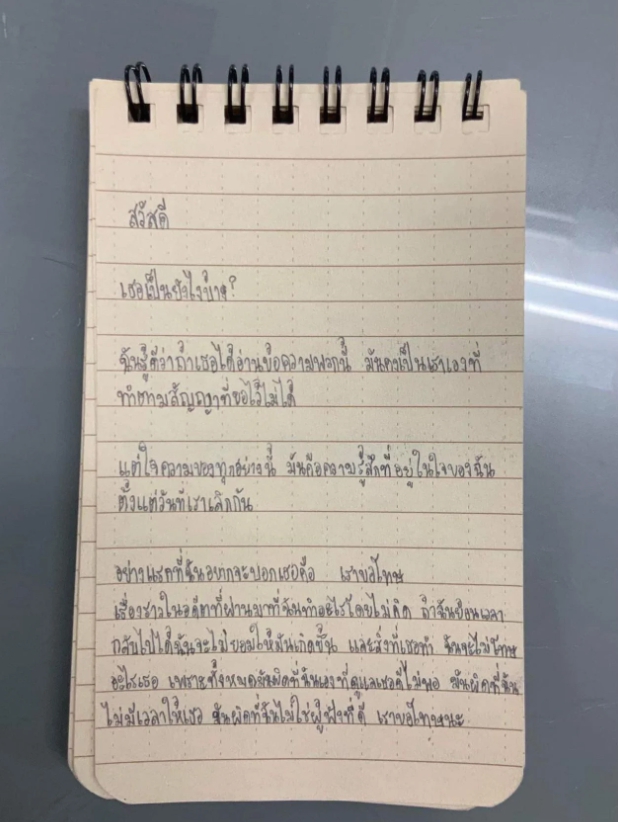 สวัสดี
เธอเป็นยังไงบ้าง?
ฉันรู้ตัวว่าถ้าเธอได้อ่านข้อความพวกนี้ มันคงเป็นเราเองที่
ทำตามสัญญาที่ขอไว้ไม่ได้
แต่ใจความของทุกอย่างนี้ มันคือความรู้สึกที่อยู่ในใจของฉัน
ตั้งแต่วันที่เราเลิกกัน
อย่างแรกที่ฉันอยากจะบอกเธอคือ เราขอโทษ
เรื่องราวในอดีตที่ผ่านมาที่ฉันทำอะไรโดยไม่คิด ถ้าฉันย้อนเวลา
กลับไปได้ฉันจะไม่ยอมให้มันเกิดขึ้น และสิ่งที่เธอทำ ฉันจะไม่โทษ
อะไรเธอ เพราะทั้งหมดมันผิดที่ฉันเองที่ดูแลเธอดีไม่พอ มันผิดที่ฉัน
ไม่มีเวลาให้เธอ มันผิดที่ฉันไม่ใช่ผู้ฟังที่ดี เราขอโทษนะ